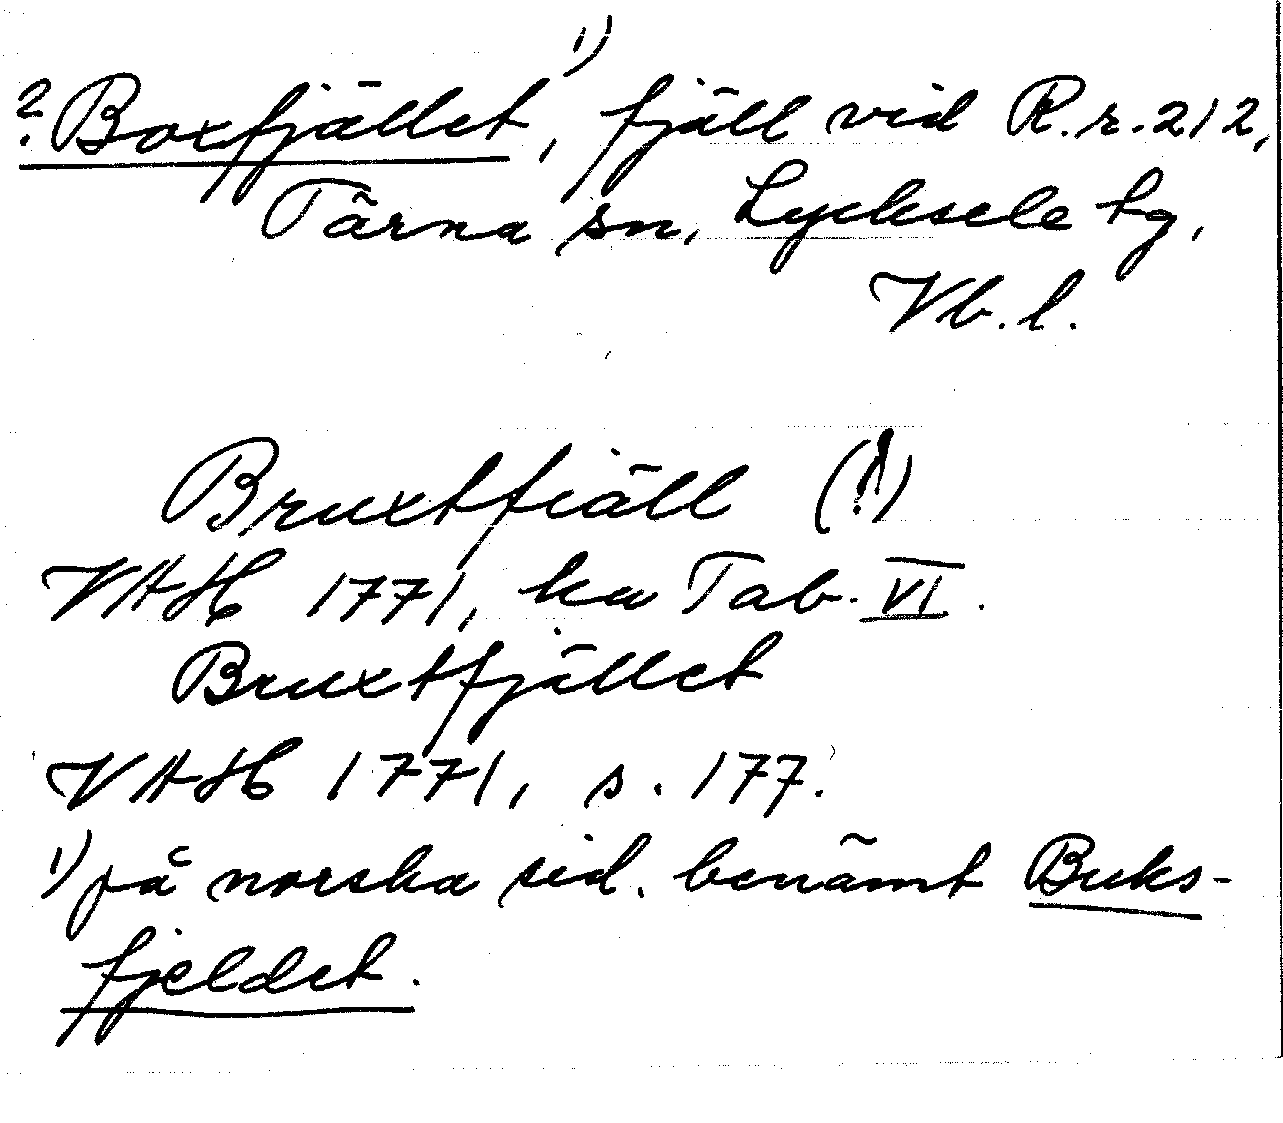 ? Boxfjället¹⁾, fjäll vid R.r. 212,
Tärna sn, Lycksele lg,
Vb. l.
Bruxtfiäll (!)
VAH 1771, ka Tab. VI.
Bruxtfjället
VAH 1771, s. 177.
¹⁾ på norska sid. benämt Buks-
fjeldet.